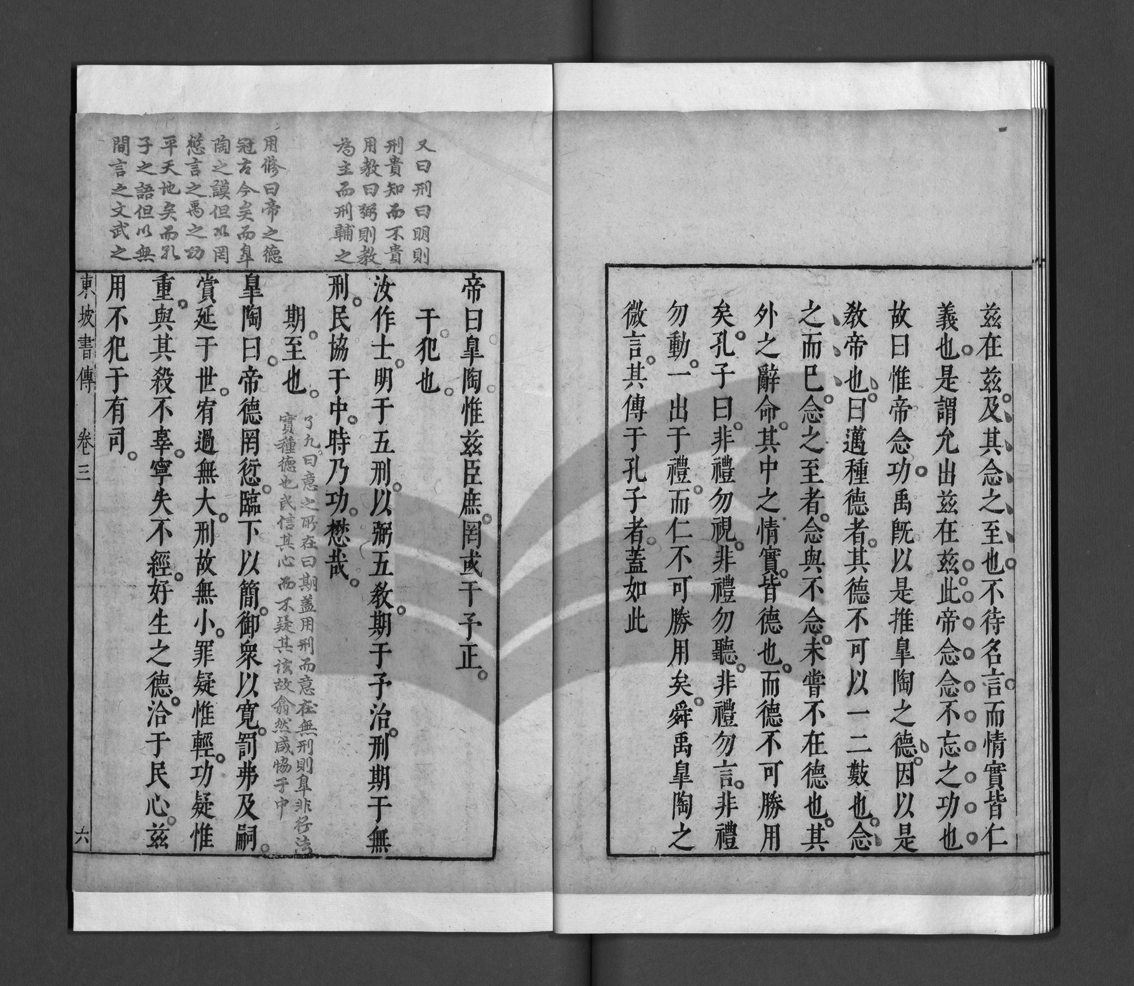 茲在茲及其念之至也不待名言而情實皆仁
義也是謂允出茲在茲此帝念念不忘之功也
故曰惟帝念功禹旣以是推臯陶之德因以是
敎帝也曰邁種德者其德不可以一二數也念
之而已念之至者念與不念未嘗不在德也其
外之辭命其中之情實皆德也而德不可勝用
矣孔子曰非禮勿視非禮勿聽非禮勿言非禮
勿動一出于禮而仁不可勝用矣舜禹臯陶之
微言其傳于孔子者蓋如此
又曰刑曰明則
刑貴知而不貴
用教曰弼則教
為主而刑輔之
用脩曰帝之德
冠古今矣而臯
陶之謨但以罔
愆言之禹之功
平天地矣而孔
子之語但以無
間言之文武之
帝曰臯陶惟茲臣庶罔或干予正
干犯也
汝作士明于五刑以弼五敎期于予治刑期于無
刑民協于中時乃功懋哉
期至也
了凡曰意之所在曰期蓋用刑而意在無刑則臯非好法
實種德也民信其心而不疑其法故翕然咸協于中
臯陶曰帝德罔愆臨下以簡御衆以寬罰弗及嗣
賞延于世宥過無大刑故無小罪疑惟輕功疑惟
重與其殺不辜寧失不經好生之德洽于民心茲
用不犯于有司
東坡書傳 卷三 六